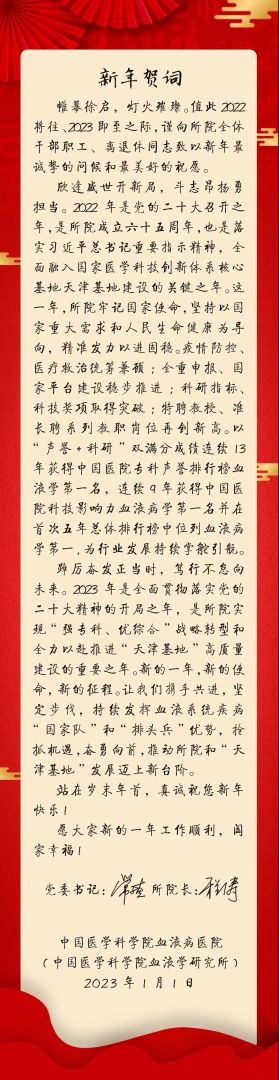 新年贺词
帷幕徐启，灯火璀璨。值此2022
将往、2023即至之际，谨向所院全体
干部职工、离退休同志致以新年最
诚挚的问候和最美好的祝愿。
欣逢盛世开新局，斗志昂扬勇
担当。2022年是党的二十大召开之
年，是所院成立六十五周年，也是落
实习近平总书记重要指示精神，全
面融入国家医学科技创新体系核心
基地天津基地建设的关键之年。这
一年，所院牢记国家使命，坚持以国
家重大需求和人民生命健康为导
向，精准发力以进固稳。疫情防控、
医疗救治统筹兼顾；全重申报、国
家平台建设稳步推进；科研指标、
科技奖项取得突破；特聘教授、准
长聘系列教职岗位再创新高。以
“声誉+科研”双满分成绩连续13
年获得中国医院专科声誉排行榜血
液学第一名，连续9年获得中国医
院科技影响力血液病学第一名并在
首次五年总体排行榜中位列血液病
学第一，为行业发展持续掌舵引航。
踔厉奋发正当时，笃行不怠向
未来。2023年是全面贯彻落实党的
二十大精神的开局之年，是所院实
现“强专科、优综合”战略转型和
全力以赴推进“天津基地”高质量
建设的重要之年。新的一年，新的使
命，新的征程。让我们携手共进，坚
定步伐，持续发挥血液系统疾病
“国家队”和“排头兵”优势，抢
抓机遇，奋勇向前，推动所院和“天
津基地”发展迈上新台阶。
站在岁末年首，真诚祝您新年
快乐！
愿大家新的一年工作顺利，阖
家幸福！
党委书记： 所院长：
中国医学科学院血液病医院
（中国医学科学院血液学研究所）
2023年1月1日